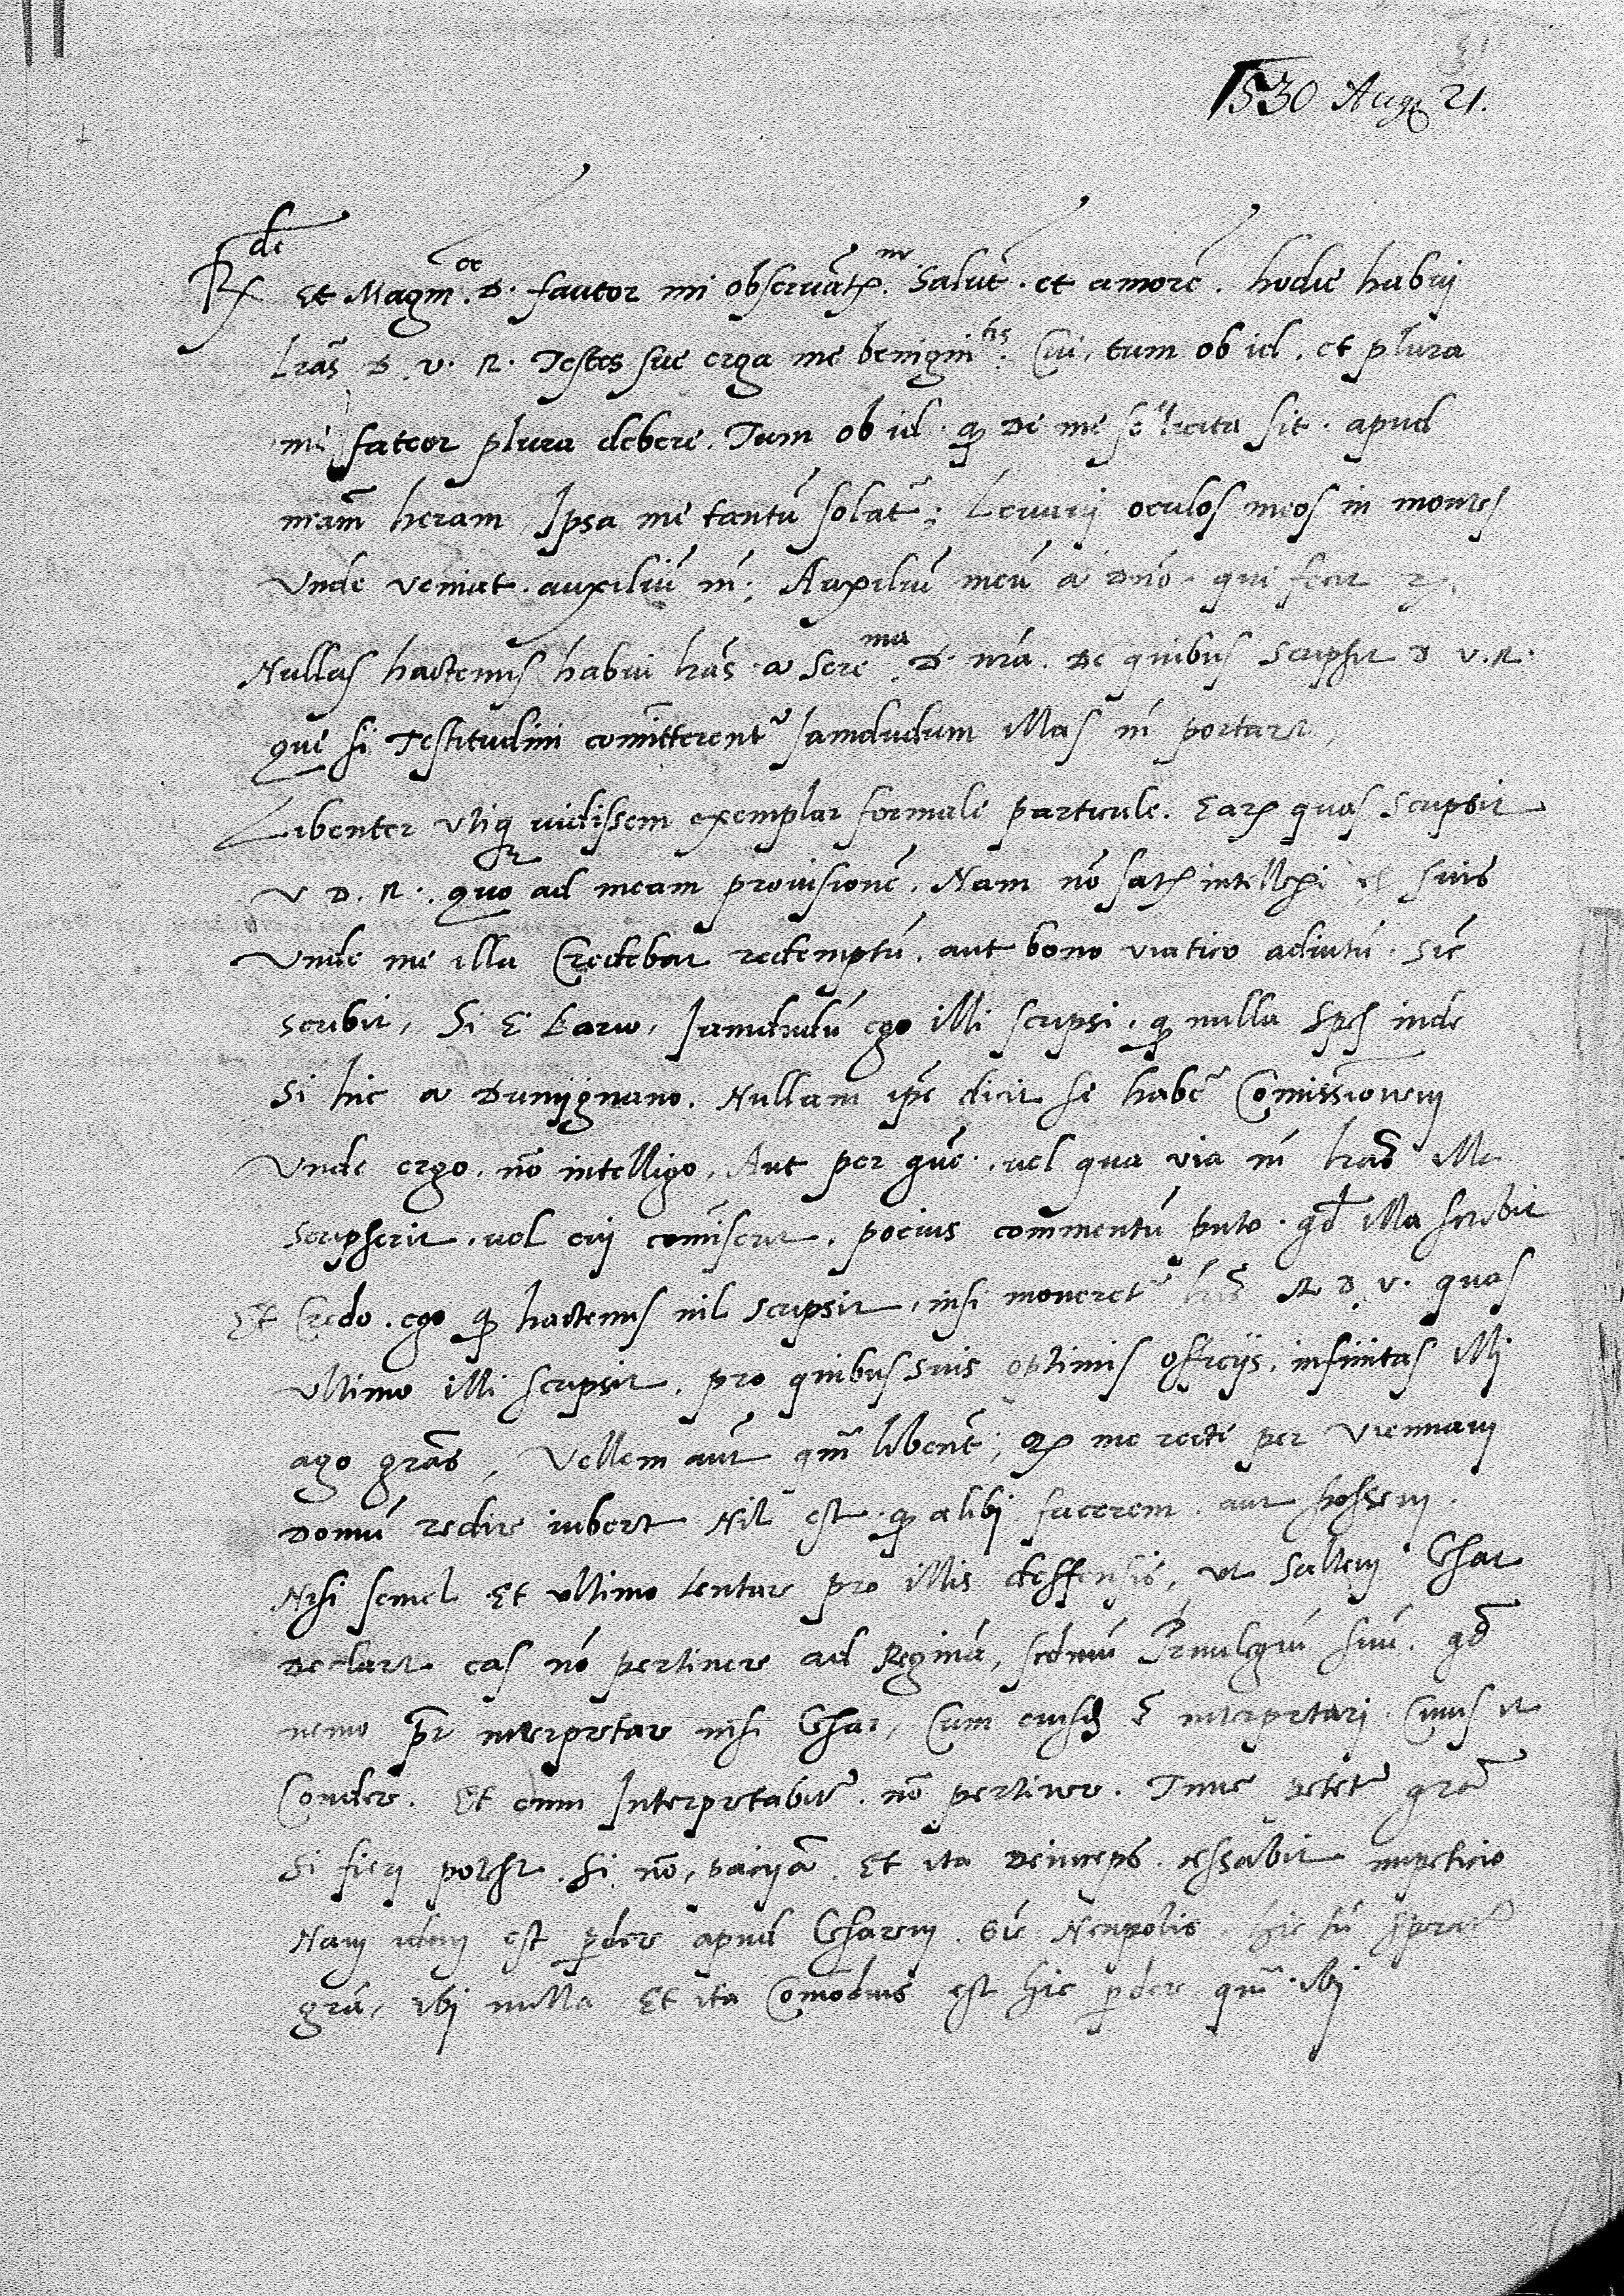 1530 Aug 21.
Rde Et Magnce. D. fautor mi observatme. Salute. et amore. hodie habui
Lras D. v. R. Testes sue erga me benignitis. Cui, tum ob id. et plura
me fateor plura debere. Tum ob id. q de me solicita sit. apud
meam heram, Ipsa me tantu solat; Levavi oculos meos in montes
Unde veniat. auxiliu m; Auxiliu meu a Dno. qui fecit
Nullas hactenus habui lras a Serema. D. nra. De quibus scripsit D v. R.
que si Testitudini comitterent Jamdudum illas m portaret,
Libenter Utiq vidissem exemplar formale particule. Ear quas scripsit
v D. R. quo ad meam provisione. Nam no satis intellexi ex suis
Unde me illa Credebat redemptu. aut bono viatico adiutu. Sic
scribit, Si E Baro, Jamdudu ego illi scripsi. q nulla spes inde
Si hic a Dumignano. Nullam ipe dicit se habe Comissionem
Unde ergo. no intelligo. Aut per que. vel qua via m lras illa
scripserit. vel cui comiserit. pocius commentu puto. qd illa scribit
Et Credo. ego q hactenus nil scripsit, nisi moneret lris R D. v. quas
ultimo illi scripsit. pro quibus suis optimis officiis. infinitas illi
ago gras, Vellem aut qm libent; me recte per Viennam
Domu redire iubert Nil est. q alibi facerem. aut possem.
Nisi semel Et ultimo tentare pro illis deffensis, ut saltem Chat
Declaret eas no pertinere ad Regina, Privilegiu suu. qd
nemo pt interpretare nisi Ghar, Cum eiusd E interpretari. Cuius et
Condere. Et cum Interpretabit. no pertinere. Tunc petet gra
Si fieri potest. si no, Et ita Deinceps. cessabit impeticio
Nam idem est pdere apud Gharem. Neapolis hic tn sperat
gra, ibi nulla Et ita Comodius est hic pdere qm ibi